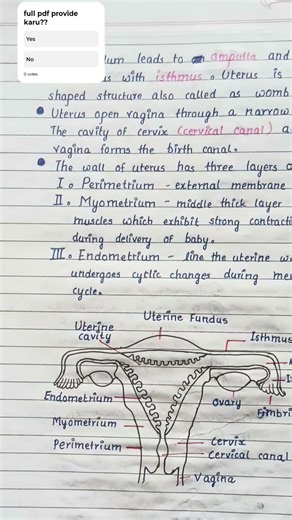 full pdf provide
karu??
Yes
No
0 votes
um leads to ampulla and
us with isthmus. Uterus is
shaped structure also called as womb
Uterus open vagina through a narrow
The cavity of cervix (cervical canal) a
vagina forms the birth canal.
The wall of uterus has three layers
I. Perimetrium - external membrane
II. Myometrium - middle thick layer
muscles which exhibit strong contracti
during delivery of baby.
III. Endometrium - line the uterine w
undergoes cytlic changes during me
cycle.
Uterine Fundus
Uterine
cavity
Isthmus
Endometrium
Ovary
Fimbri
Myometrium
Perimetrium
Cervix
Cervical canal
Vagina